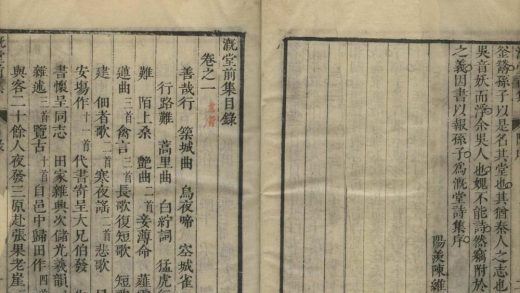 釜鬵孫子以是名其堂也其猶秦人之志也
吳音妖而浮余吳人也媿不能詩然竊附於
之義因書以報孫子為溉堂詩集序
陽羨陳維
溉堂前集目錄
卷之一
善哉行 築城曲 烏夜啼 空城雀
行路難 蒿里曲 白紵詞 猛虎
難 陌上桑 艷曲二首 妾薄命
邊曲三首 禽言三首 長歌復短歌 短
建 佃者歌二首 寒夜謠二首 悲歌
安塲作 代書寄呈大兄伯發
書懷呈同志 田家雜興次儲光羲韻
雜述三首 覽古十一首 自邑中歸田作四
與客二十餘人夜發三原赴張果老崖